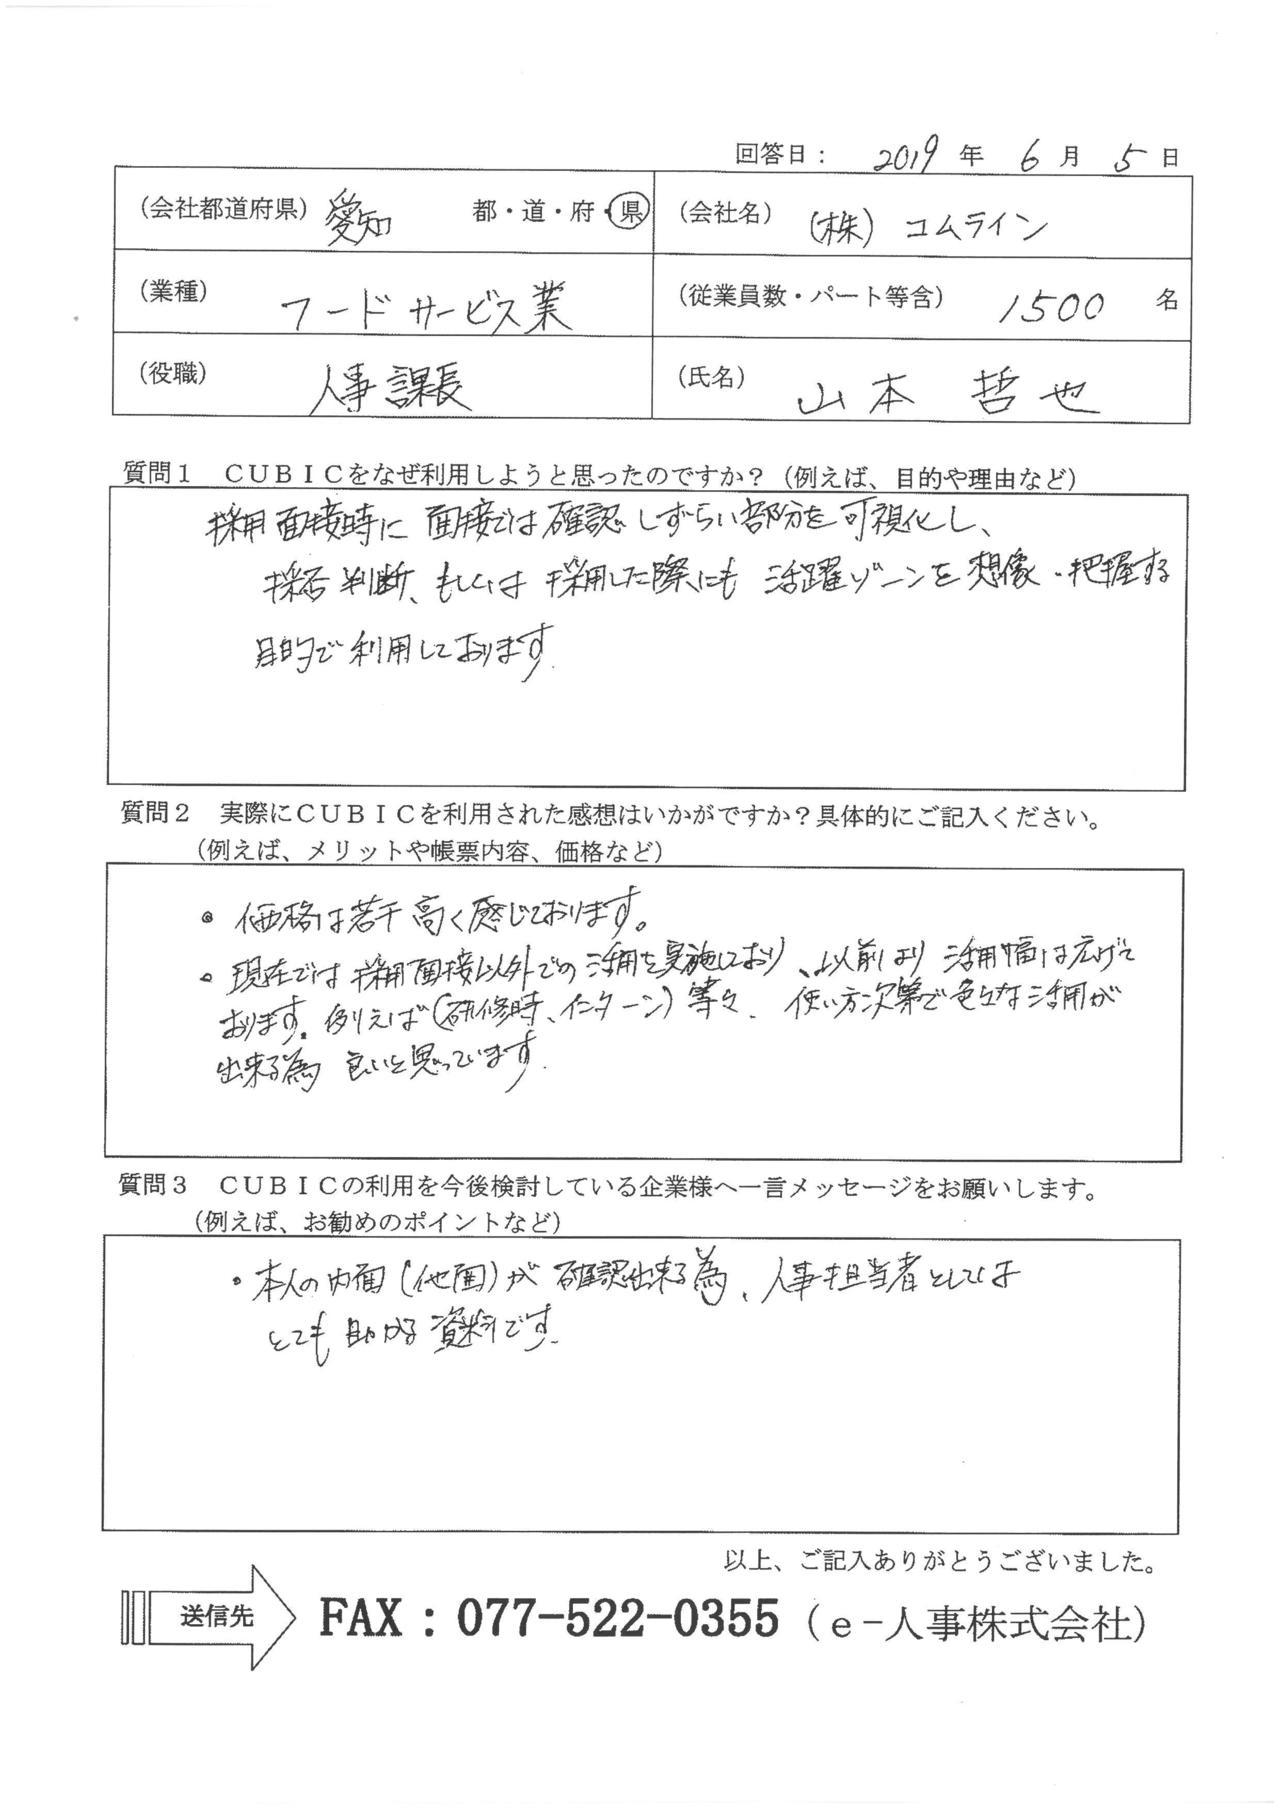 回答日： 2019 年 6 月 5 日
（会社都道府県） 愛知 都・道・府・県 （会社名） （株） コムライン
（業種） フードサービス業 （従業員数・パート等含） 1500 名
（役職） 人事課長 （氏名） 山本 哲也
質問１　ＣＵＢＩＣをなぜ利用しようと思ったのですか？（例えば、目的や理由など）
採用面接時に 面接では確認しずらい部分を可視化し、
採否判断、もしくは 採用した際にも 活躍ゾーンを想像・把握する
目的で利用しております.
質問２　実際にＣＵＢＩＣを利用された感想はいかがですか？具体的にご記入ください。
（例えば、メリットや帳票内容、価格など）
・価格は若干高く感じております。
・現在では採用面接以外での活用を実施しており、以前より 活用幅は広げて
おります. 例えば（研修時、インターン）等々. 使い方次第で色々な活用が
出来る為 良いと思っています.
質問３　ＣＵＢＩＣの利用を今後検討している企業様へ一言メッセージをお願いします。
（例えば、お勧めのポイントなど）
・本人の内面（他面）が確認出来る為、人事担当者としては
とても助かる資料です.
以上、ご記入ありがとうございました。
送信先 FAX：077-522-0355（ｅ-人事株式会社）